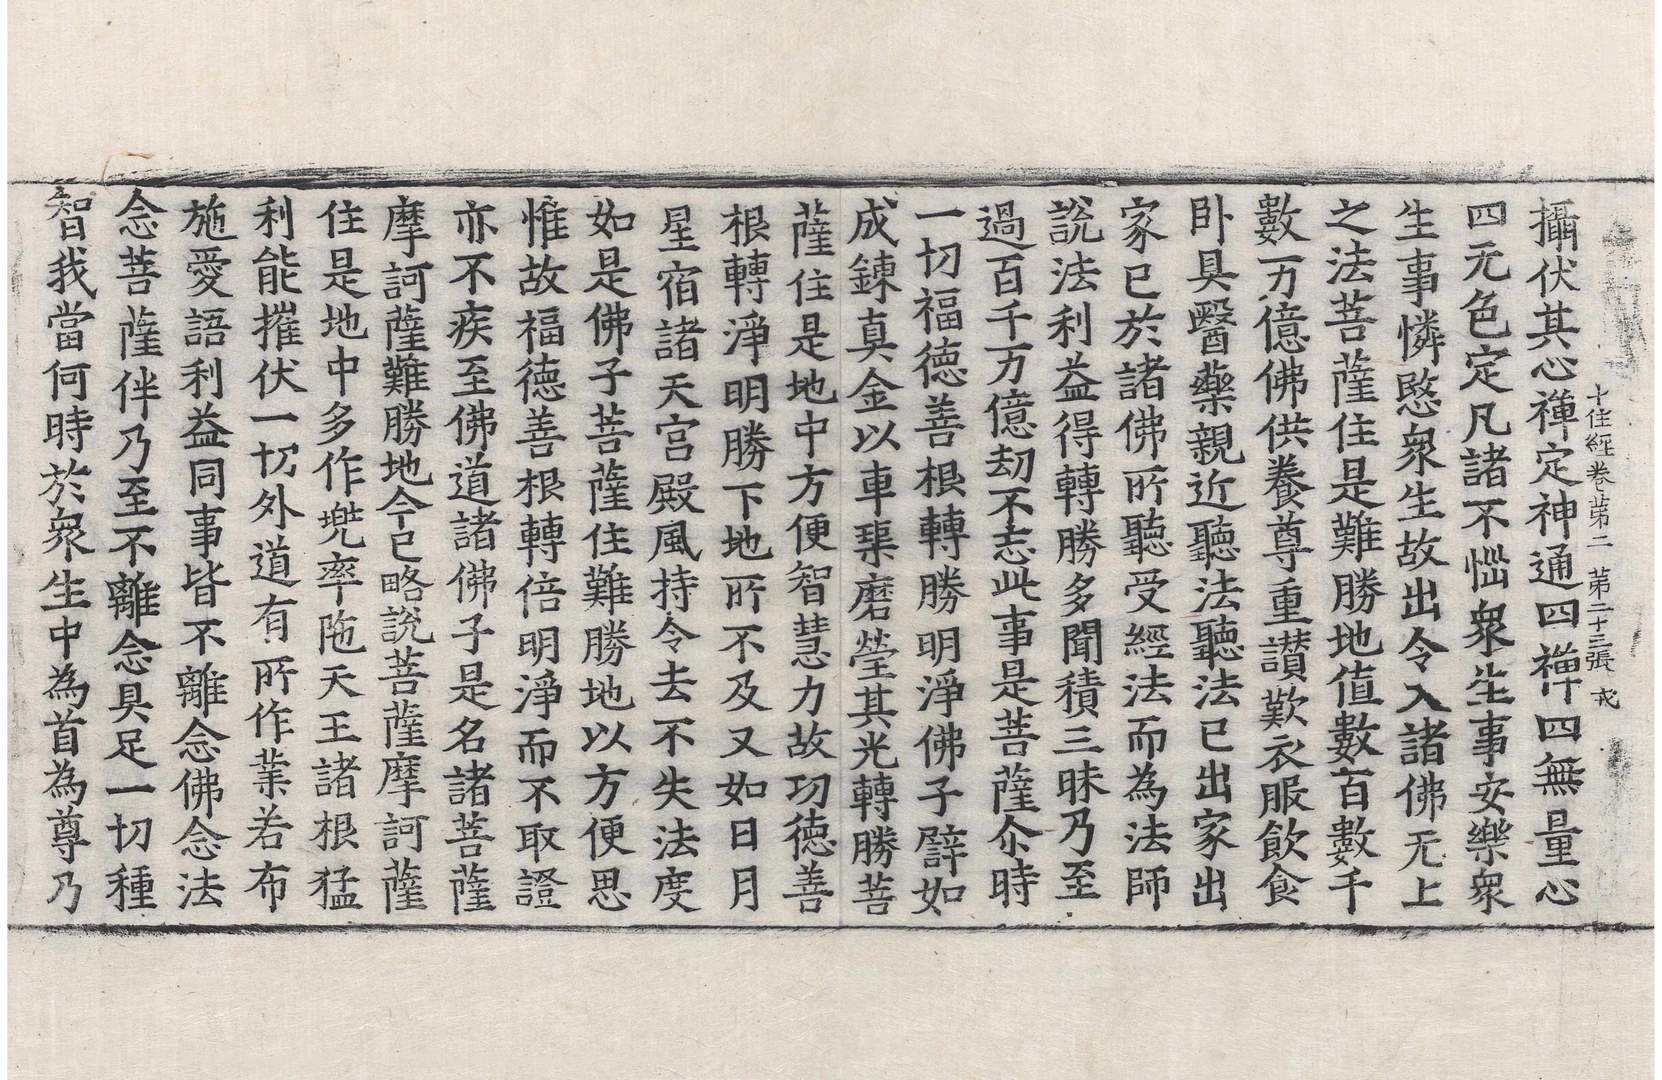 十住經卷第二　第二十三張　戎
攝伏其心禪定神通四禪四無量心
四无色定凡諸不惱衆生事安樂衆
生事憐愍衆生故出令入諸佛无上
之法菩薩住是難勝地值數百數千
數万億佛供養尊重讃歎衣服飲食
卧具醫藥親近聽法聽法已出家出
家已於諸佛所聽受經法而為法師
說法利益得轉勝多聞積三昧乃至
過百千万億劫不忘此事是菩薩尒時
一切福德善根轉勝明淨佛子譬如
成鍊真金以車𤦲磨瑩其光轉勝菩
薩住是地中方便智慧力故功德善
根轉淨明勝下地所不及又如日月
星宿諸天宮殿風持令去不失法度
如是佛子菩薩住難勝地以方便思
惟故福德善根轉倍明淨而不取證
亦不疾至佛道諸佛子是名諸菩薩
摩訶薩難勝地今已略說菩薩摩訶薩
住是地中多作兠率陁天王諸根猛
利能摧伏一切外道有所作業若布
施愛語利益同事皆不離念佛念法
念菩薩伴乃至不離念具足一切種
智我當何時於衆生中為首為尊乃